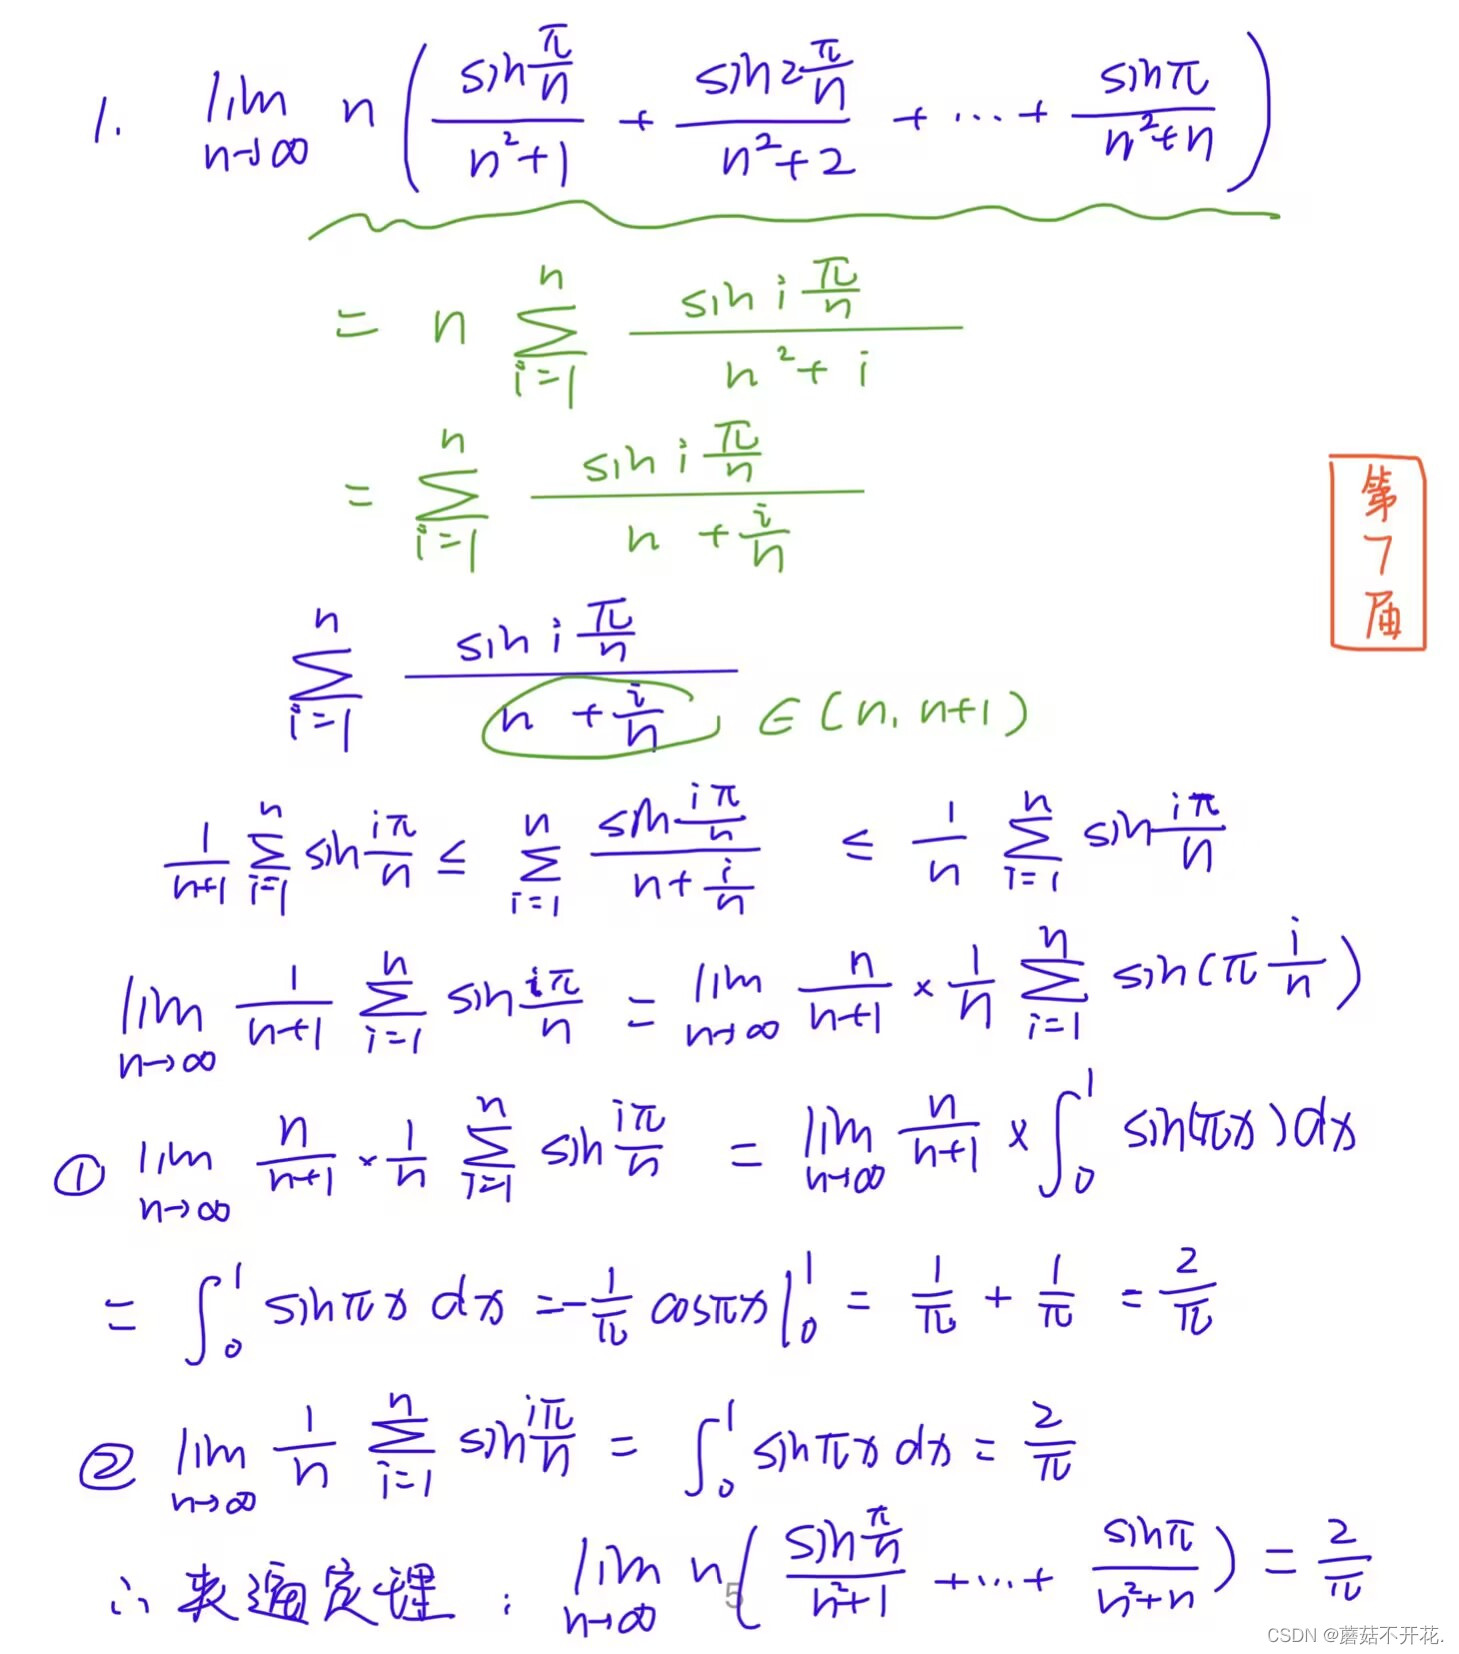 1. lim n→∞ n( sin π/n / n²+1 + sin 2π/n / n²+2 + ... + sin π / n²+n )
= n ∑ i=1 n sin i π/n / n²+i
= ∑ i=1 n sin i π/n / n + i/n
第7届
∑ i=1 n sin i π/n / n + i/n ∈ (n, n+1)
1/n+1 ∑ i=1 n sin iπ/n ≤ ∑ i=1 n sin iπ/n / n + i/n ≤ 1/n ∑ i=1 n sin iπ/n
lim n→∞ 1/n+1 ∑ i=1 n sin iπ/n = lim n→∞ n/n+1 × 1/n ∑ i=1 n sin(π i/n)
① lim n→∞ n/n+1 × 1/n ∑ i=1 n sin iπ/n = lim n→∞ n/n+1 × ∫₀¹ sin(πx)dx
= ∫₀¹ sinπx dx = -1/π cosπx |₀¹ = 1/π + 1/π = 2/π
② lim n→∞ 1/n ∑ i=1 n sin iπ/n = ∫₀¹ sinπx dx = 2/π
∴ 夹逼定理: lim n→∞ n( sin π/n / n²+1 + ... + sinπ / n²+n ) = 2/π
5
CSDN @蘑菇不开花.